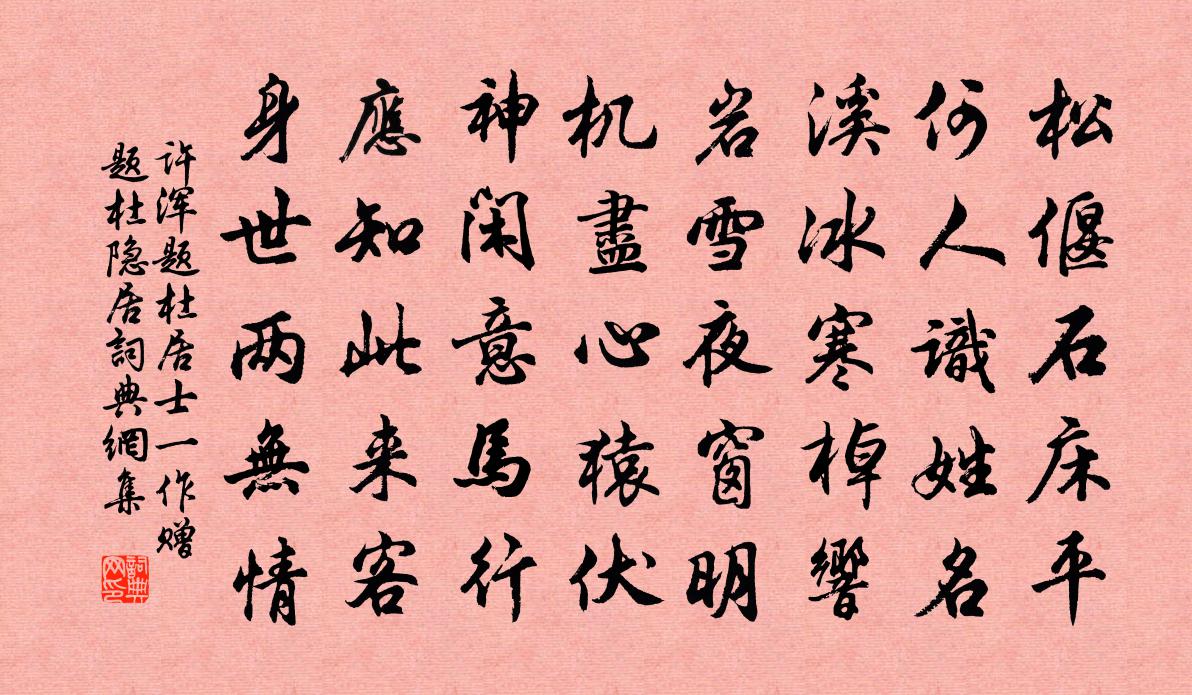 松偃石床平
何人識姓名
溪冰寒棹響
岩雪夜窗明
机盡心猿伏
神閑意馬行
應知此来客
身世两無情
许浑题杜居士一作赠
题杜隐居詞典網集
詞典
网印